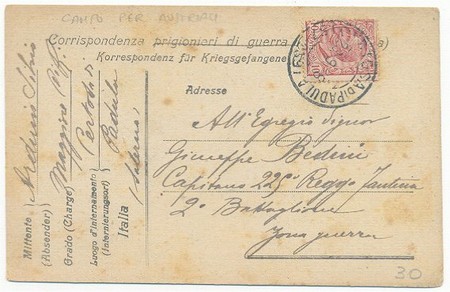 CAMPO PER AUSTRIACI
Corrispondenza prigionieri di guerra
Korrespondenz für Kriegsgefangene
Adresse
All'Egregio Signor
Giuseppe Bedini
Capitano 22º Regg. Fanteria
2º Battaglione
Zona guerra
30
Mittente
(Absender)
Grado (Charge) Maggiore
Luogo d'Internamento
(Internierungsort)
Padula
Italia Salerno
CERTOSA DI PADULA